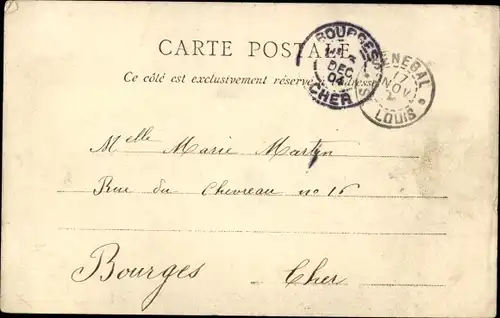 CARTE POSTALE
Ce côté est exclusivement réservé à l'adresse
BOURGES
DEC
04
CHER
SENEGAL
17
NOV
ST LOUIS
Melle Marie Martin
Rue du Chevreau no 16
Bourges Cher